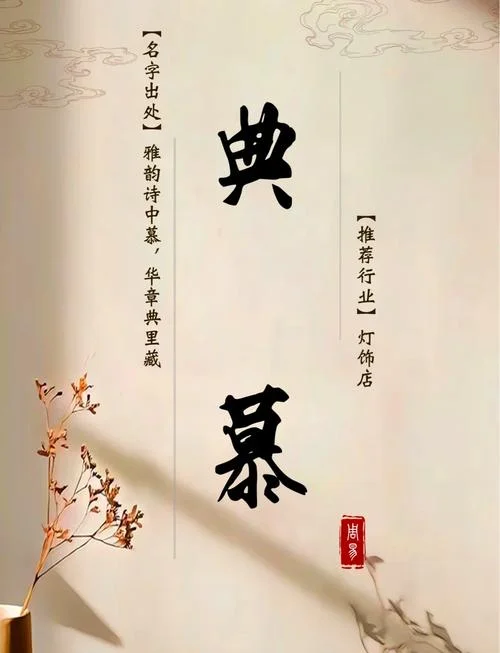 典慕
【名字出处】雅韵诗中慕，华章典里藏
【推荐行业】灯饰店
周易